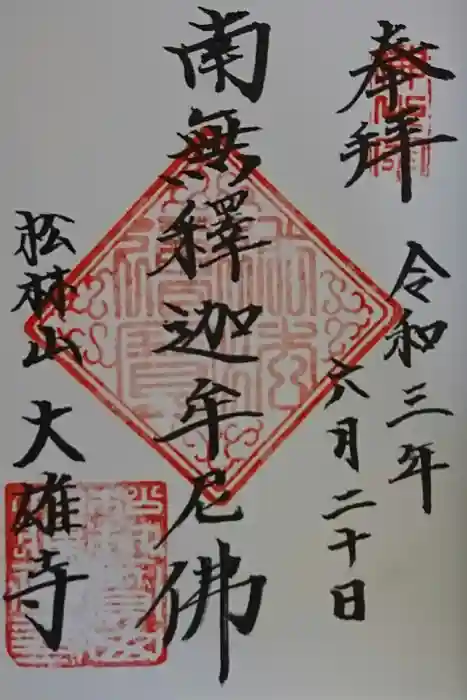 奉拜
令和三年
六月二十日
南無釋迦牟尼佛
松林山 大雄寺